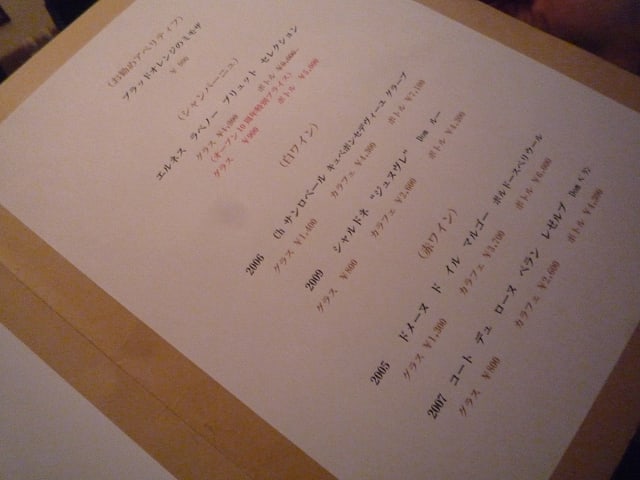 (お勧めアペリティフ)
ブラッドオレンジのミモザ
¥ 900
(シャンパーニュ)
エルネス ラペノー ブリュット セレクション
グラス ¥1,000 ボトル ¥6,000
(オープン10周年特別プライス)
グラス ¥900 ボトル ¥5,400
(白ワイン)
2006 Ch サンロベール キュベポンセデヴィーユ グラーブ
グラス ¥1,400 カラフェ ¥4,300 ボトル ¥7,100
2009 シャルドネ "ジュヌヴレ" Dom ルー
グラス ¥800 カラフェ ¥2,600 ボトル ¥4,300
(赤ワイン)
2005 ドメーヌ ド イル マルゴー ボルドースペリウール
グラス ¥1,300 カラフェ ¥3,700 ボトル ¥6,400
2007 コート デュ ローヌ ペラン レゼルブ Dom
グラス ¥800 カラフェ ¥2,600 ボトル ¥4,300